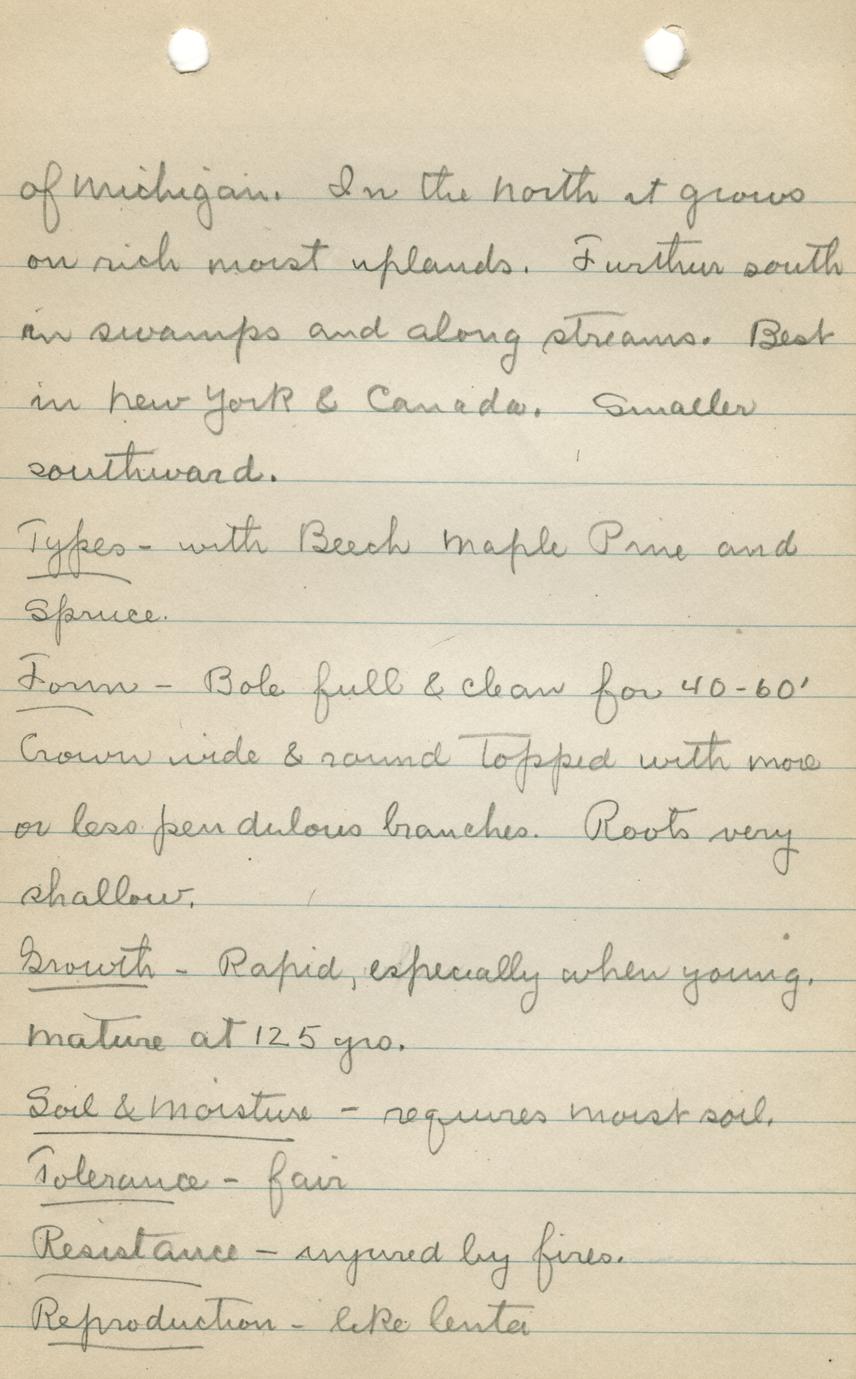 of Michigan. In the north it grows
on rich moist uplands. Further south
in swamps and along streams. Best
in New York & Canada. Smaller
southward.
Types - with Beech Maple Pine and
Spruce.
Form - Bole full & clean for 40-60'
Crown wide & round topped with more
or less pendulous branches. Roots very
shallow.
Growth - Rapid, especially when young.
Mature at 125 yrs.
Soil & Moisture - requires moist soil.
Tolerance - fair
Resistance - injured by fires.
Reproduction - like lenta